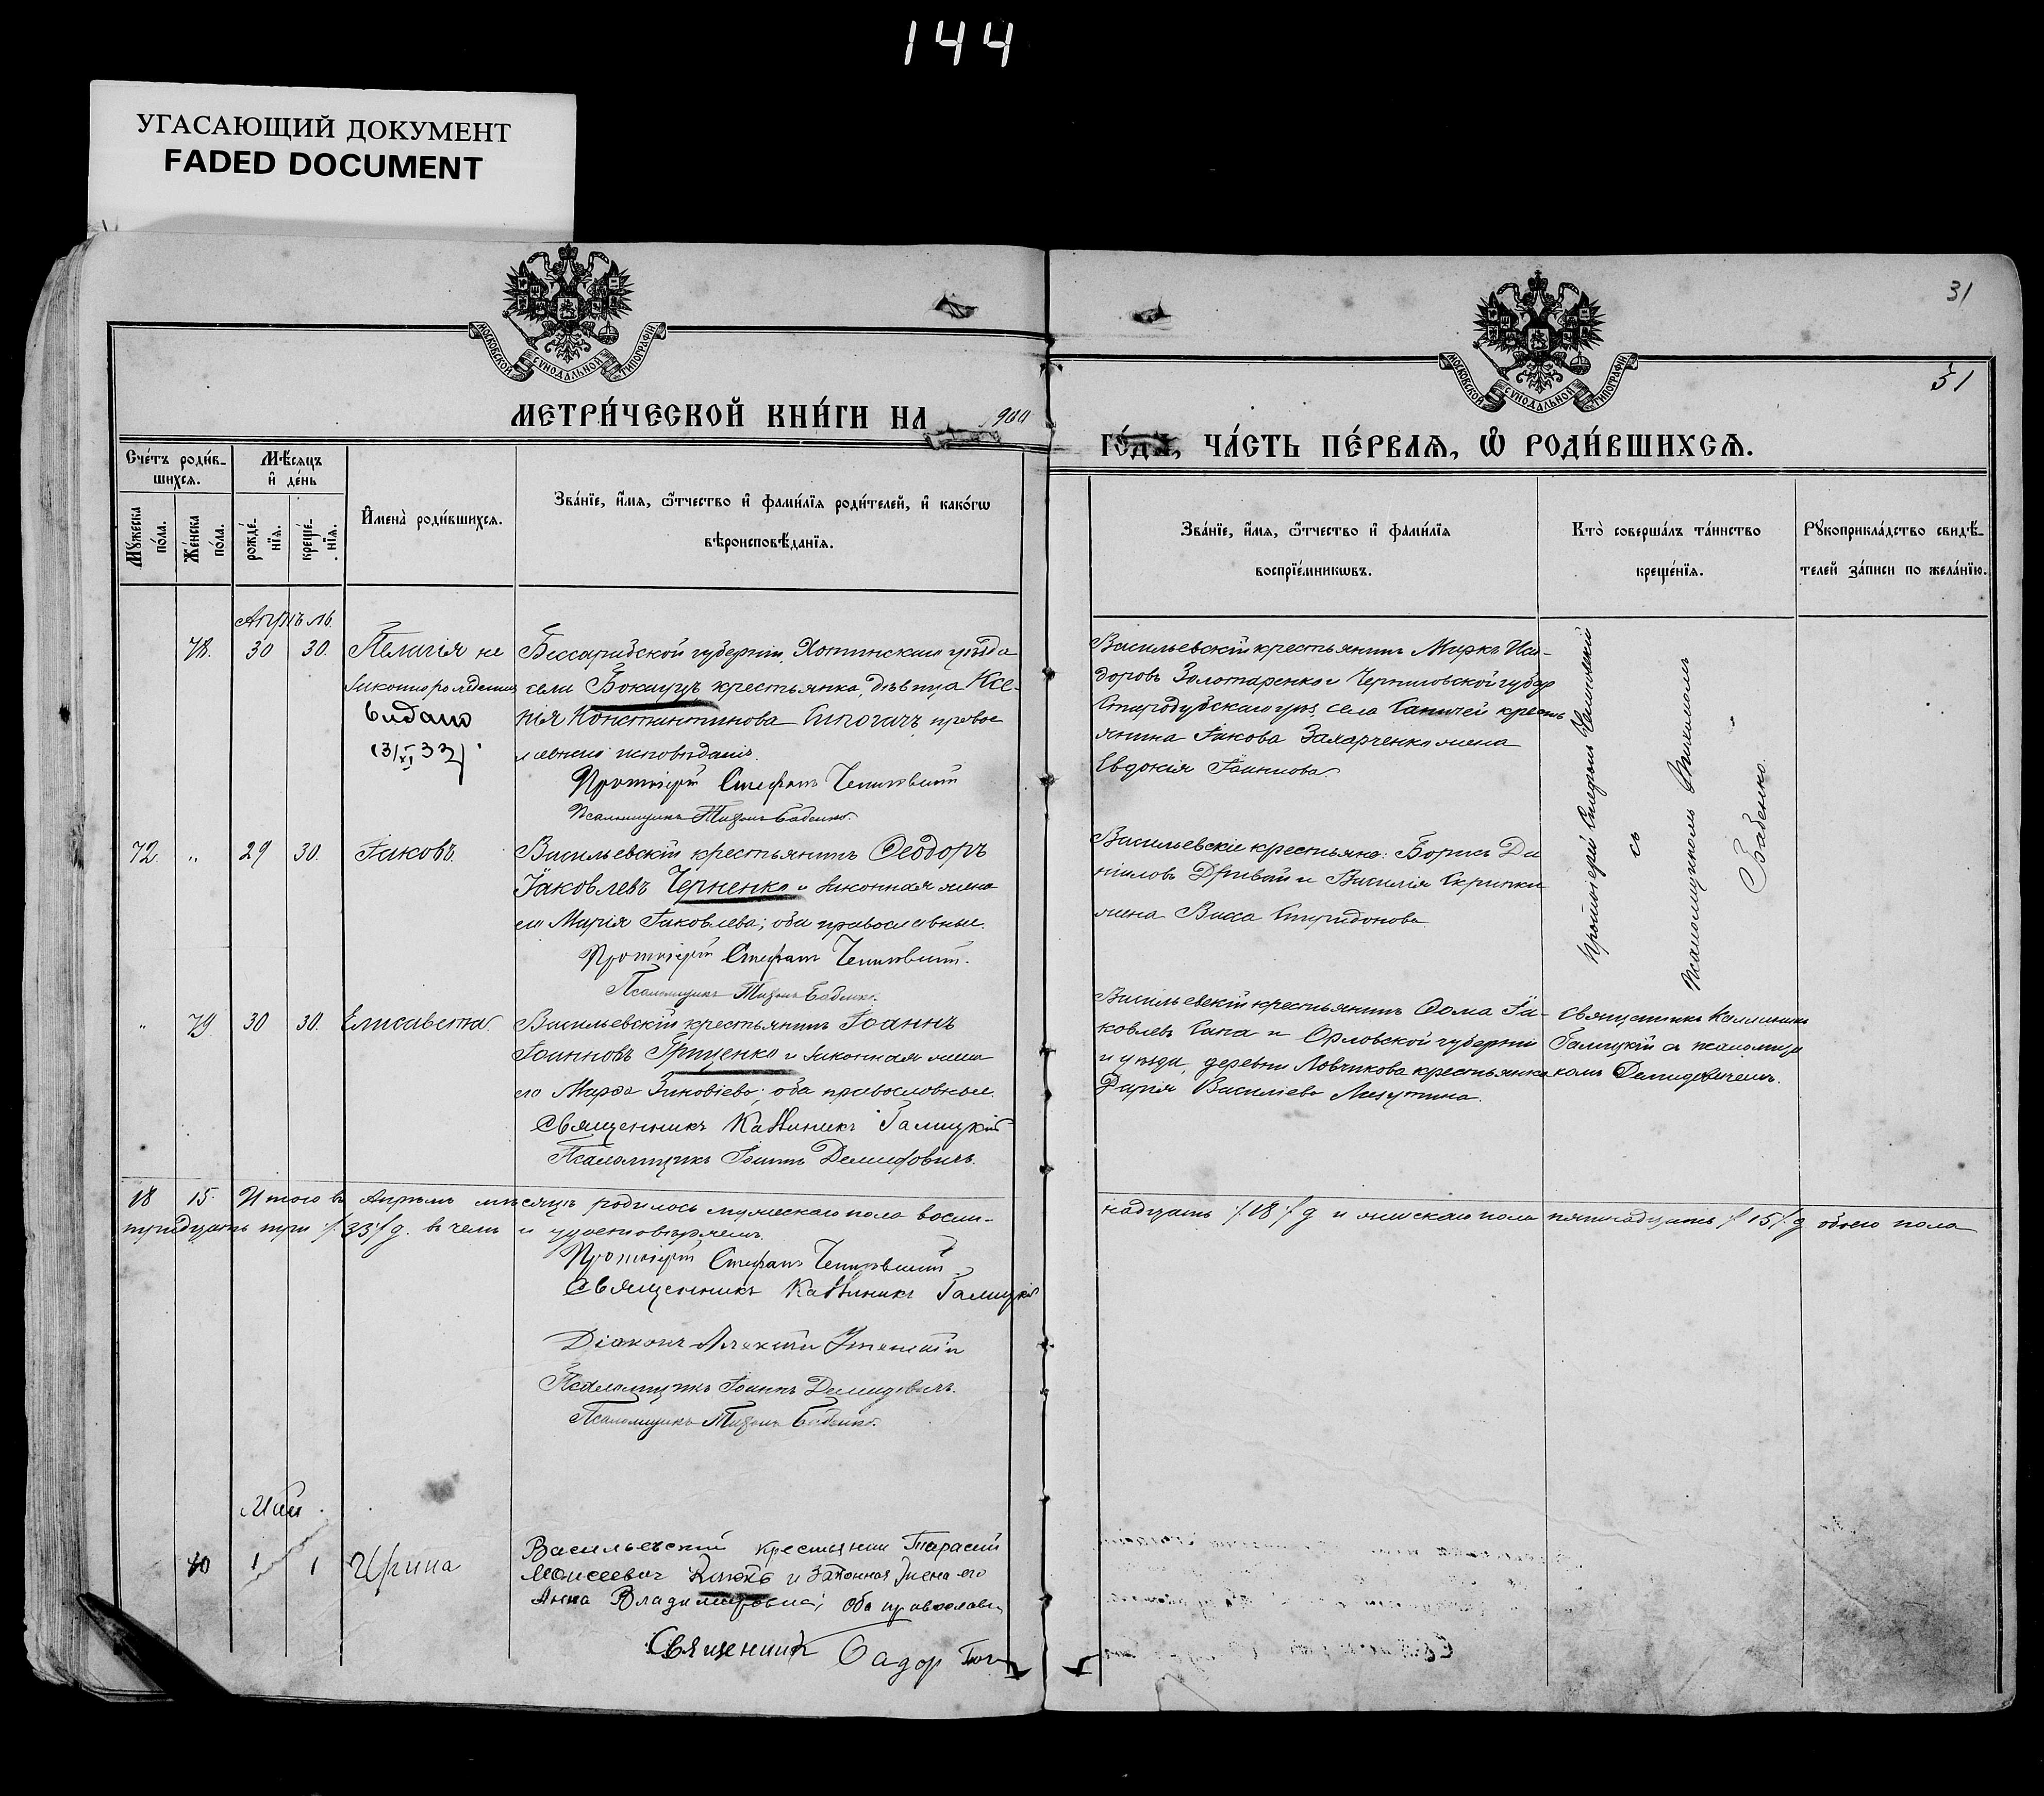 144
УГАСАЮЩИЙ ДОКУМЕНТ
FADED DOCUMENT
31
31
МОСКОВСКОЙ СУНОДАЛЬНОЙ ТИПОГРАФІИ
МОСКОВСКОЙ СУНОДАЛЬНОЙ ТИПОГРАФІИ
МЕТРИ́ЧЕСКОЙ КНИ́ГИ НА 1900
ГО́ДЪ, ЧА́СТЬ ПЕ́РВАЯ, Ѡ РОДИ́ВШИХСЯ.
Сче́тъ роди́в-
шихся.
Мѣ́сяцъ
и҆ де́нь
Му́жеска по́ла.
Же́нска по́ла.
рожде́нїя.
креще́нїя.
И҆мена̀ роди́вшихся.
Зва́нїе, и҆́мя, ѻ҆́тчество и҆ фами́лїя роди́телей, и҆ како́гѡ
вѣроисповѣ́данїя.
Зва́нїе, и҆́мя, ѻ҆́тчество и҆ фами́лїя
воспрїе́мникѡвъ.
Кто̀ соверша́лъ та́инство
креще́нїя.
Рукоприкла́дство свидѣ́-
телей за́писи по жела́нїю.
Апрѣль.
78. 30 30. Пелагія не
законнорожденная
видано
Бессарабской губерніи, Хотинскаго уѣзда
села Бокауцъ крестьянка, дѣвица Ксе-
нія Константинова православнаго исповѣданія.
Протоіерей Стефанъ
Псаломщикъ Тихонъ Бабенко.
Васильевскій крестьянинъ Маркъ Иси-
доровъ Золотаренко и Черниговской губер
Стародубскаго уѣз. села крестьянина Іакова Захарченко жена
Евдокія Іоаннова.
Протоіерей Стефанъ
съ
Псаломщикомъ Тихономъ
Бабенко.
72. " 29 30. Іаковъ.
Васильевскій крестьянинъ Ѳеодоръ
Іаковлевъ Черненко и законная жена
его Марія Іаковлева; оба православные.
Протоіерей Стефанъ
Псаломщикъ Тихонъ Бабенко.
Васильевскіе крестьяне: Борисъ Да
ніиловъ и Василія Скрипки
жена Васса Спиридонова
" 79. 30 30. Елисавета.
Васильевскій крестьянинъ Іоаннъ
Іоанновъ Гриценко и законная жена
его Марѳа Зиновіева; оба православные.
Священникъ Каллиникъ Галицкій
Псаломщикъ Іоаннъ Демидовичъ.
Васильевскій крестьянинъ Ѳома Іа-
ковлевъ Сапа и Орловской губерніи
и уѣзда, деревни Ловчикова крестьянка
Дарія Василіева
Священникъ Каллиникъ
Галицкій съ псаломщи
комъ Демидовичемъ.
18 15. Итого въ Апрѣлѣ мѣсяцѣ родилось мужескаго пола восем-
надцать /18/ д и женскаго пола пятнадцать /15/ д обоего пола
тридцать три /33/ д. въ чемъ и удостовѣряемъ.
Протоіерей Стефанъ
Священникъ Каллиникъ Галицкій
Діаконъ Алексій
Псаломщикъ Іоаннъ Демидовичъ.
Псаломщикъ Тихонъ Бабенко.
Май
1 1 Ирина
Васильевскій крестянин Тарасий
Моисеевич и законная жена его
Анна Владимировна; оба православн
Священник